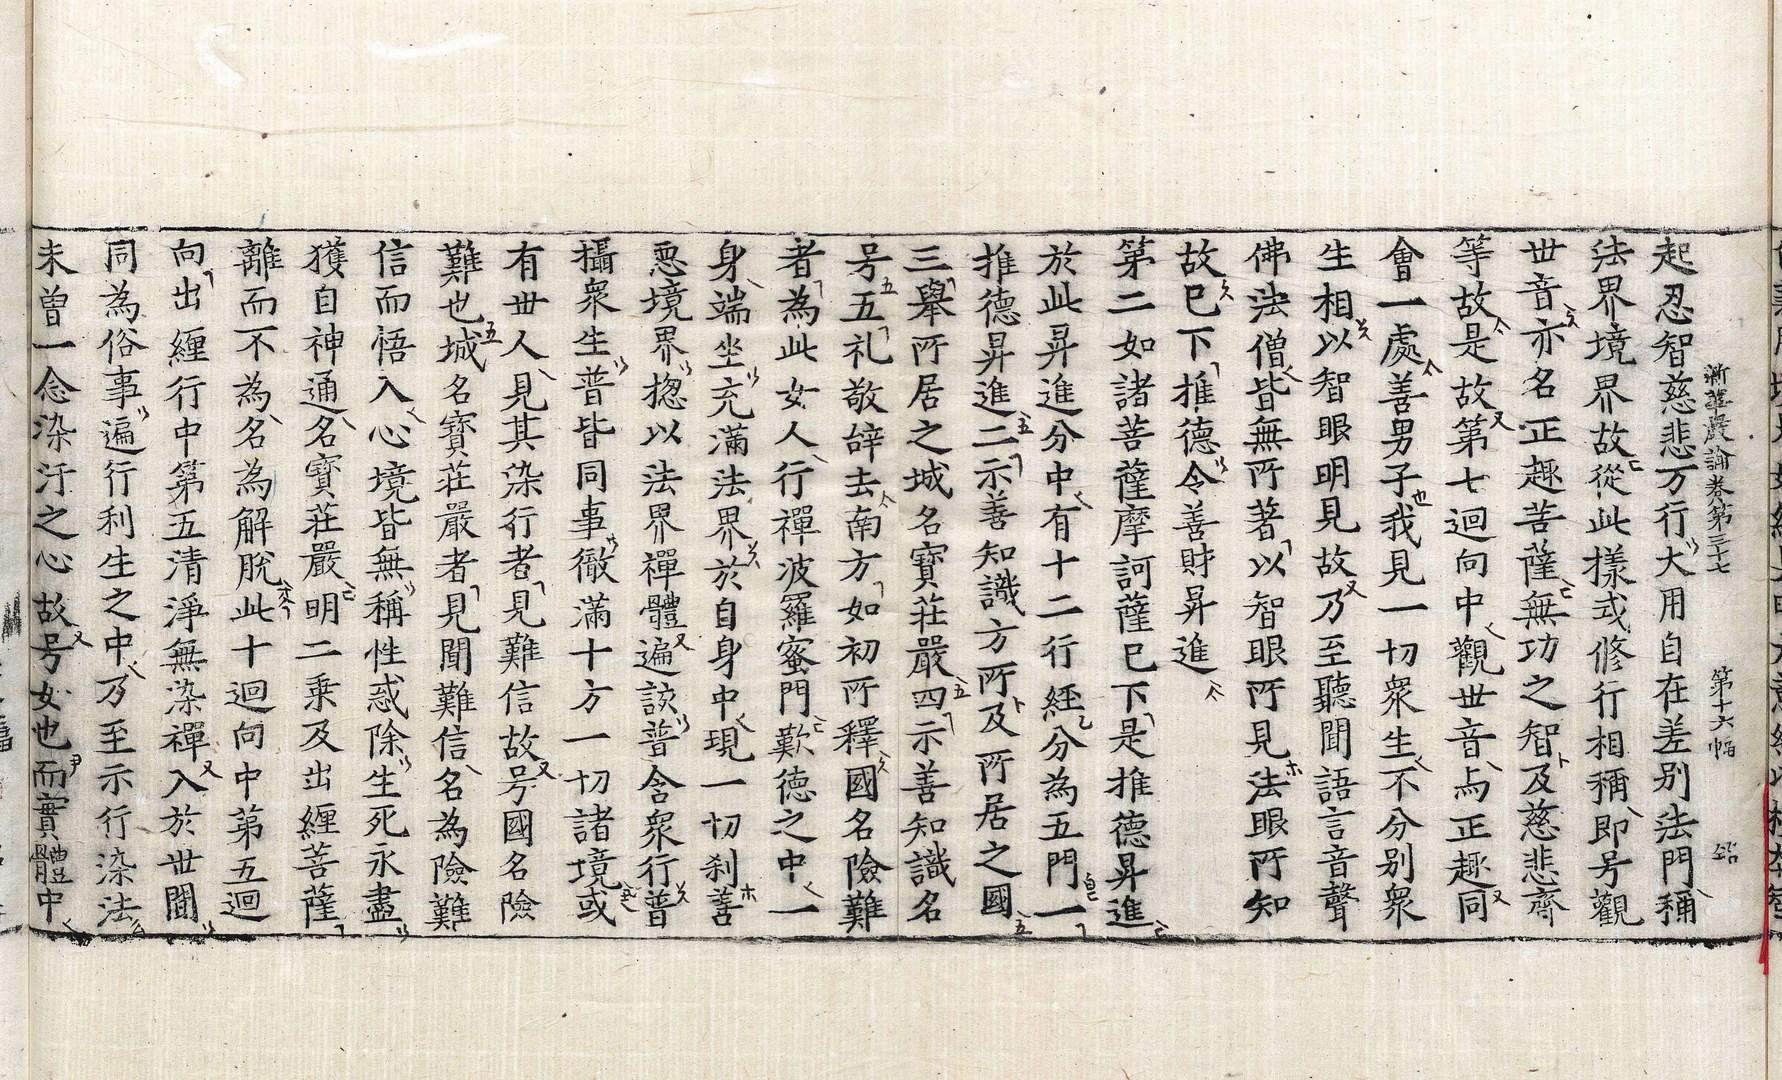 新華嚴論卷第三十七 第十六幅 䥐
起忍智慈悲万行大用自在差別法門稱
法界境界故從此樣式修行相稱即号觀
世音亦名正趣菩薩無功之智及慈悲齊
等故是故第七迴向中觀世音与正趣同
會一處善男子我見一切衆生不分別衆
生相以智眼明見故乃至聽聞語言音聲
佛法僧皆無所著以智眼所見法眼所知
故已下推德令善財昇進
第二如諸菩薩摩訶薩已下是推德昇進
於此昇進分中有十二行經分為五門一
推德昇進二示善知識方所及所居之國
三舉所居之城名寶莊嚴四示善知識名
号五礼敬辝去南方如初所釋國名險難
者為此女人行禪波羅蜜門歎德之中一
身端坐充滿法界於自身中現一切刹善
惡境界揔以法界禪體遍該普含衆行普
攝衆生普皆同事徹滿十方一切諸境或
有世人見其染行者見難信故号國名險
難也城名寶莊嚴者見聞難信名為險難
信而悟入心境皆無稱性惑除生死永盡
獲自神通名寶莊嚴明二乘及出纏菩薩
離而不為名為解脫此十迴向中第五迴
向出纏行中第五清淨無染禪入於世間
同為俗事遍行利生之中乃至示行染法
未曾一念染汙之心故号女也而實體中